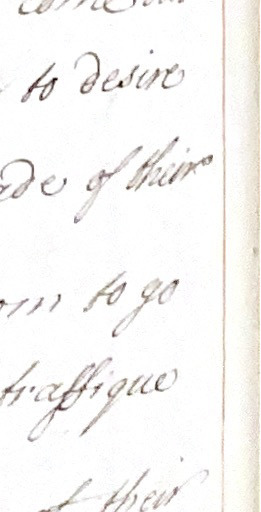 to desire
of their
to go
traffique
of their